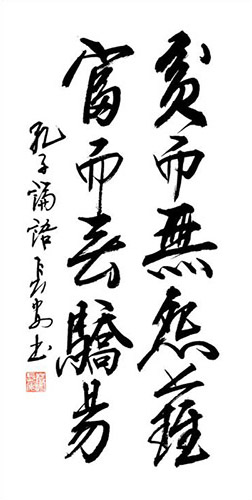 貧而無怨難
富而無驕易
孔子論語書